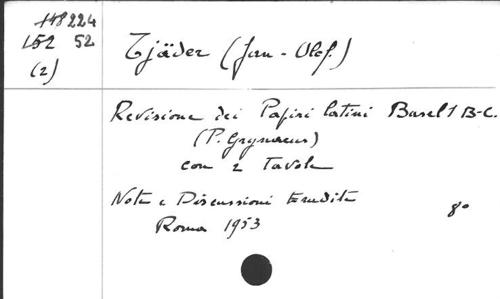 118224
152 52
(2)
Tjäder (Jan-Olof.)
Revisione dei Papiri latini Basel 1 B-C.
(P. Grynaeus)
con 2 Tavole
Note e Discussioni erudite
Roma 1953
8°